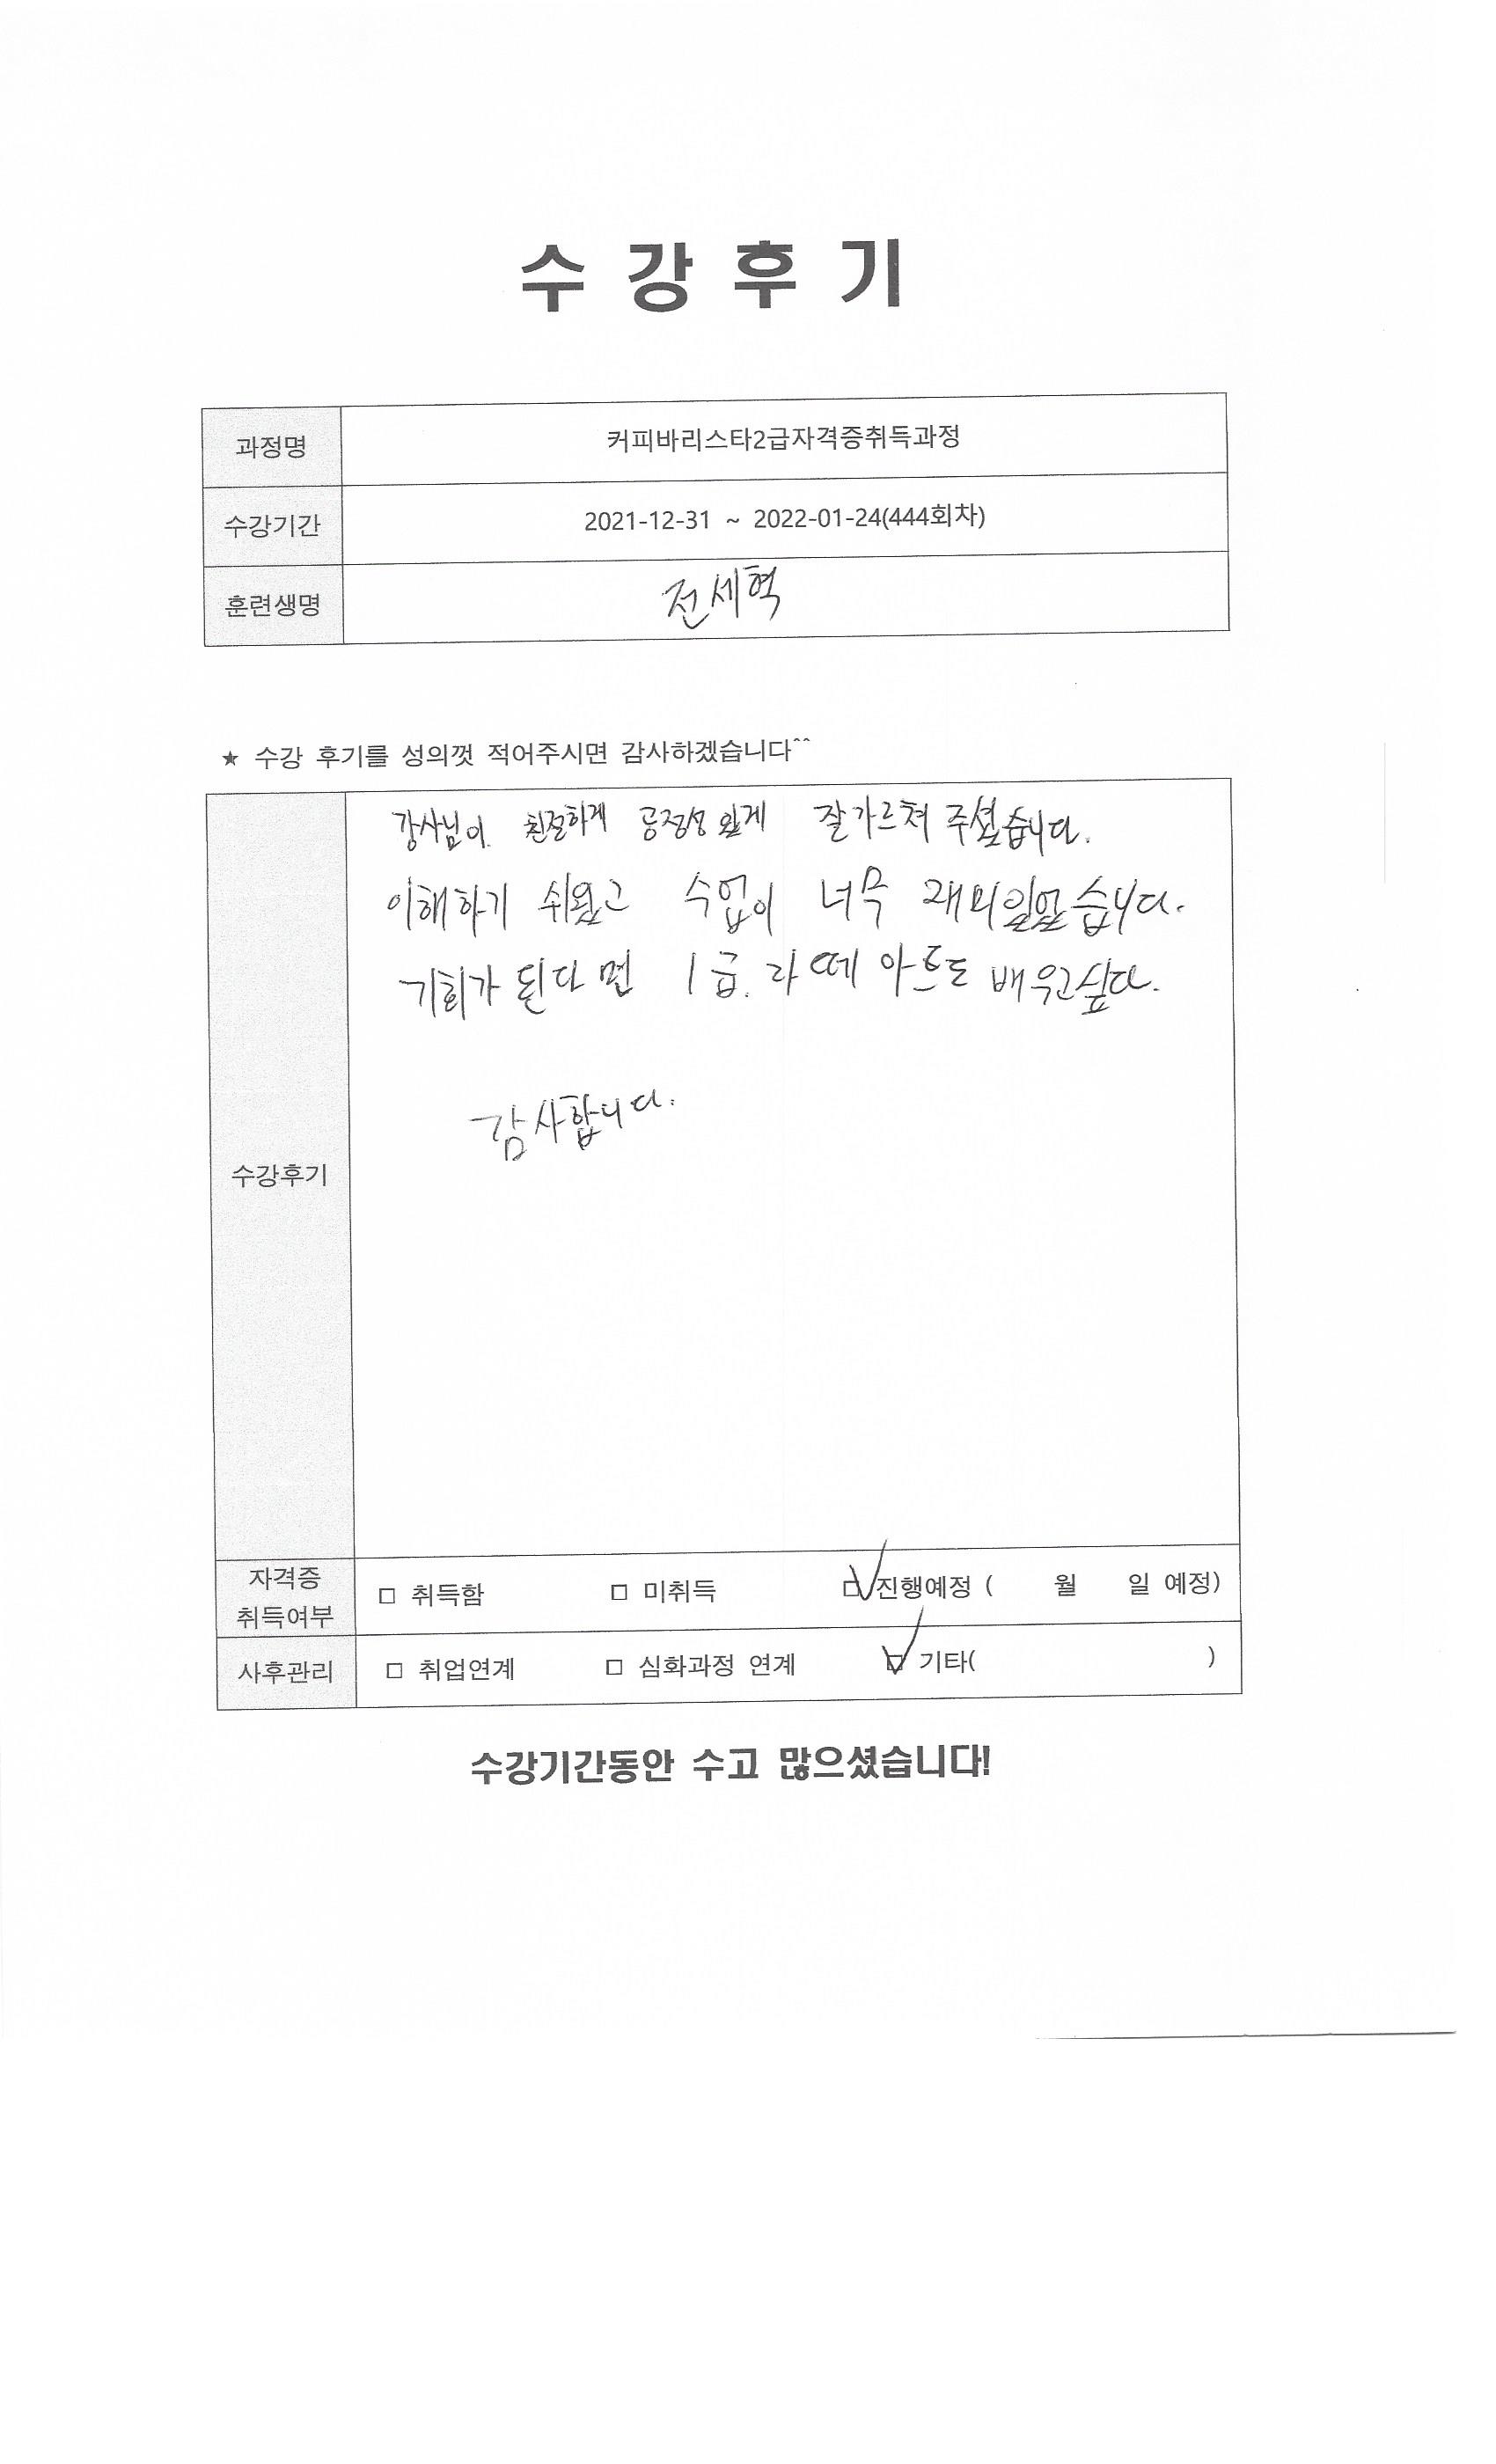 수 강 후 기
과정명 커피바리스타2급자격증취득과정
수강기간 2021-12-31 ~ 2022-01-24(444회차)
훈련생명 전세혁
★ 수강 후기를 성의껏 적어주시면 감사하겠습니다^^
강사님이 친절하게 공정성 있게 잘가르쳐 주셨습니다.
이해하기 쉬웠고 수업이 너무 재미있었습니다.
기회가 된다면 1급. 라떼 아트도 배우고싶다.
감사합니다.
수강후기
자격증
취득여부
□ 취득함 □ 미취득 □ 진행예정 ( 월 일 예정)
사후관리 □ 취업연계 □ 심화과정 연계 □ 기타( )
수강기간동안 수고 많으셨습니다!